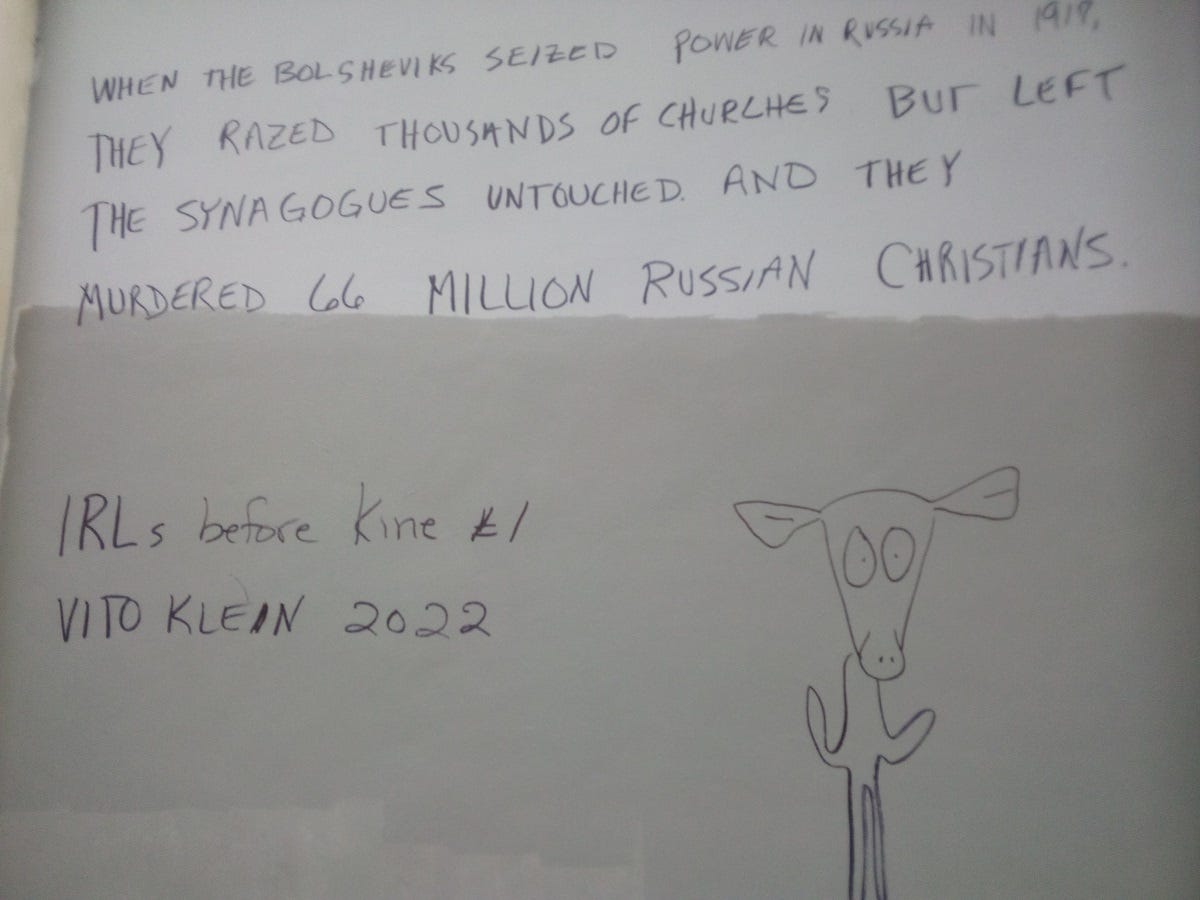 WHEN THE BOLSHEVIKS SEIZED POWER IN RUSSIA IN 1917,
THEY RAZED THOUSANDS OF CHURCHES BUT LEFT
THE SYNAGOGUES UNTOUCHED. AND THEY
MURDERED 66 MILLION RUSSIAN CHRISTIANS.
IRLs before Kine #1
VITO KLEIN 2022